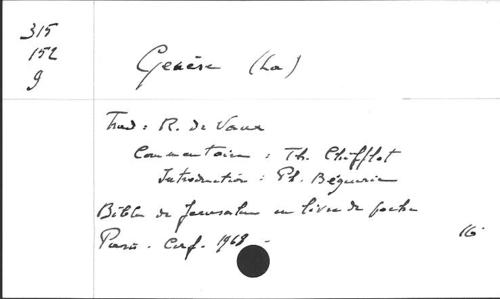 315
152
g
Genèse (La)
Trad : R. de Vaux
Commentaire : Th. Chifflot
Introduction : Ph. Béguerie
Bible de Jerusalem en livre de poche
Paris. Cerf. 1968 -
16